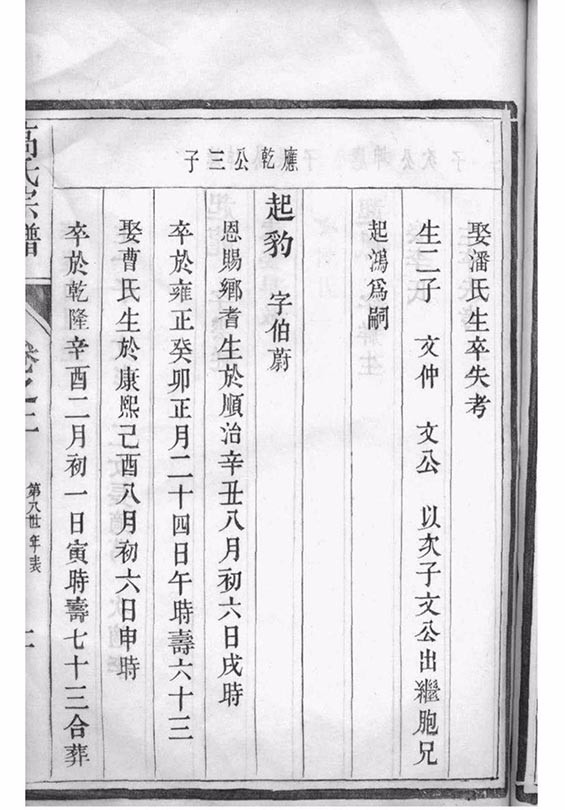 娶潘氏生卒失考
生二子 文仲 文公 以次子文公出繼胞兄
起鴻爲嗣
應乾公三子
起豹 字伯蔚
恩賜鄉耆生於順治辛丑八月初六日戌時
卒於雍正癸卯正月二十四日午時壽六十三
娶曹氏生於康熙己酉八月初六日申時
卒於乾隆辛酉二月初一日寅時壽七十三合葬
高氏宗譜
卷之二
第八世年表